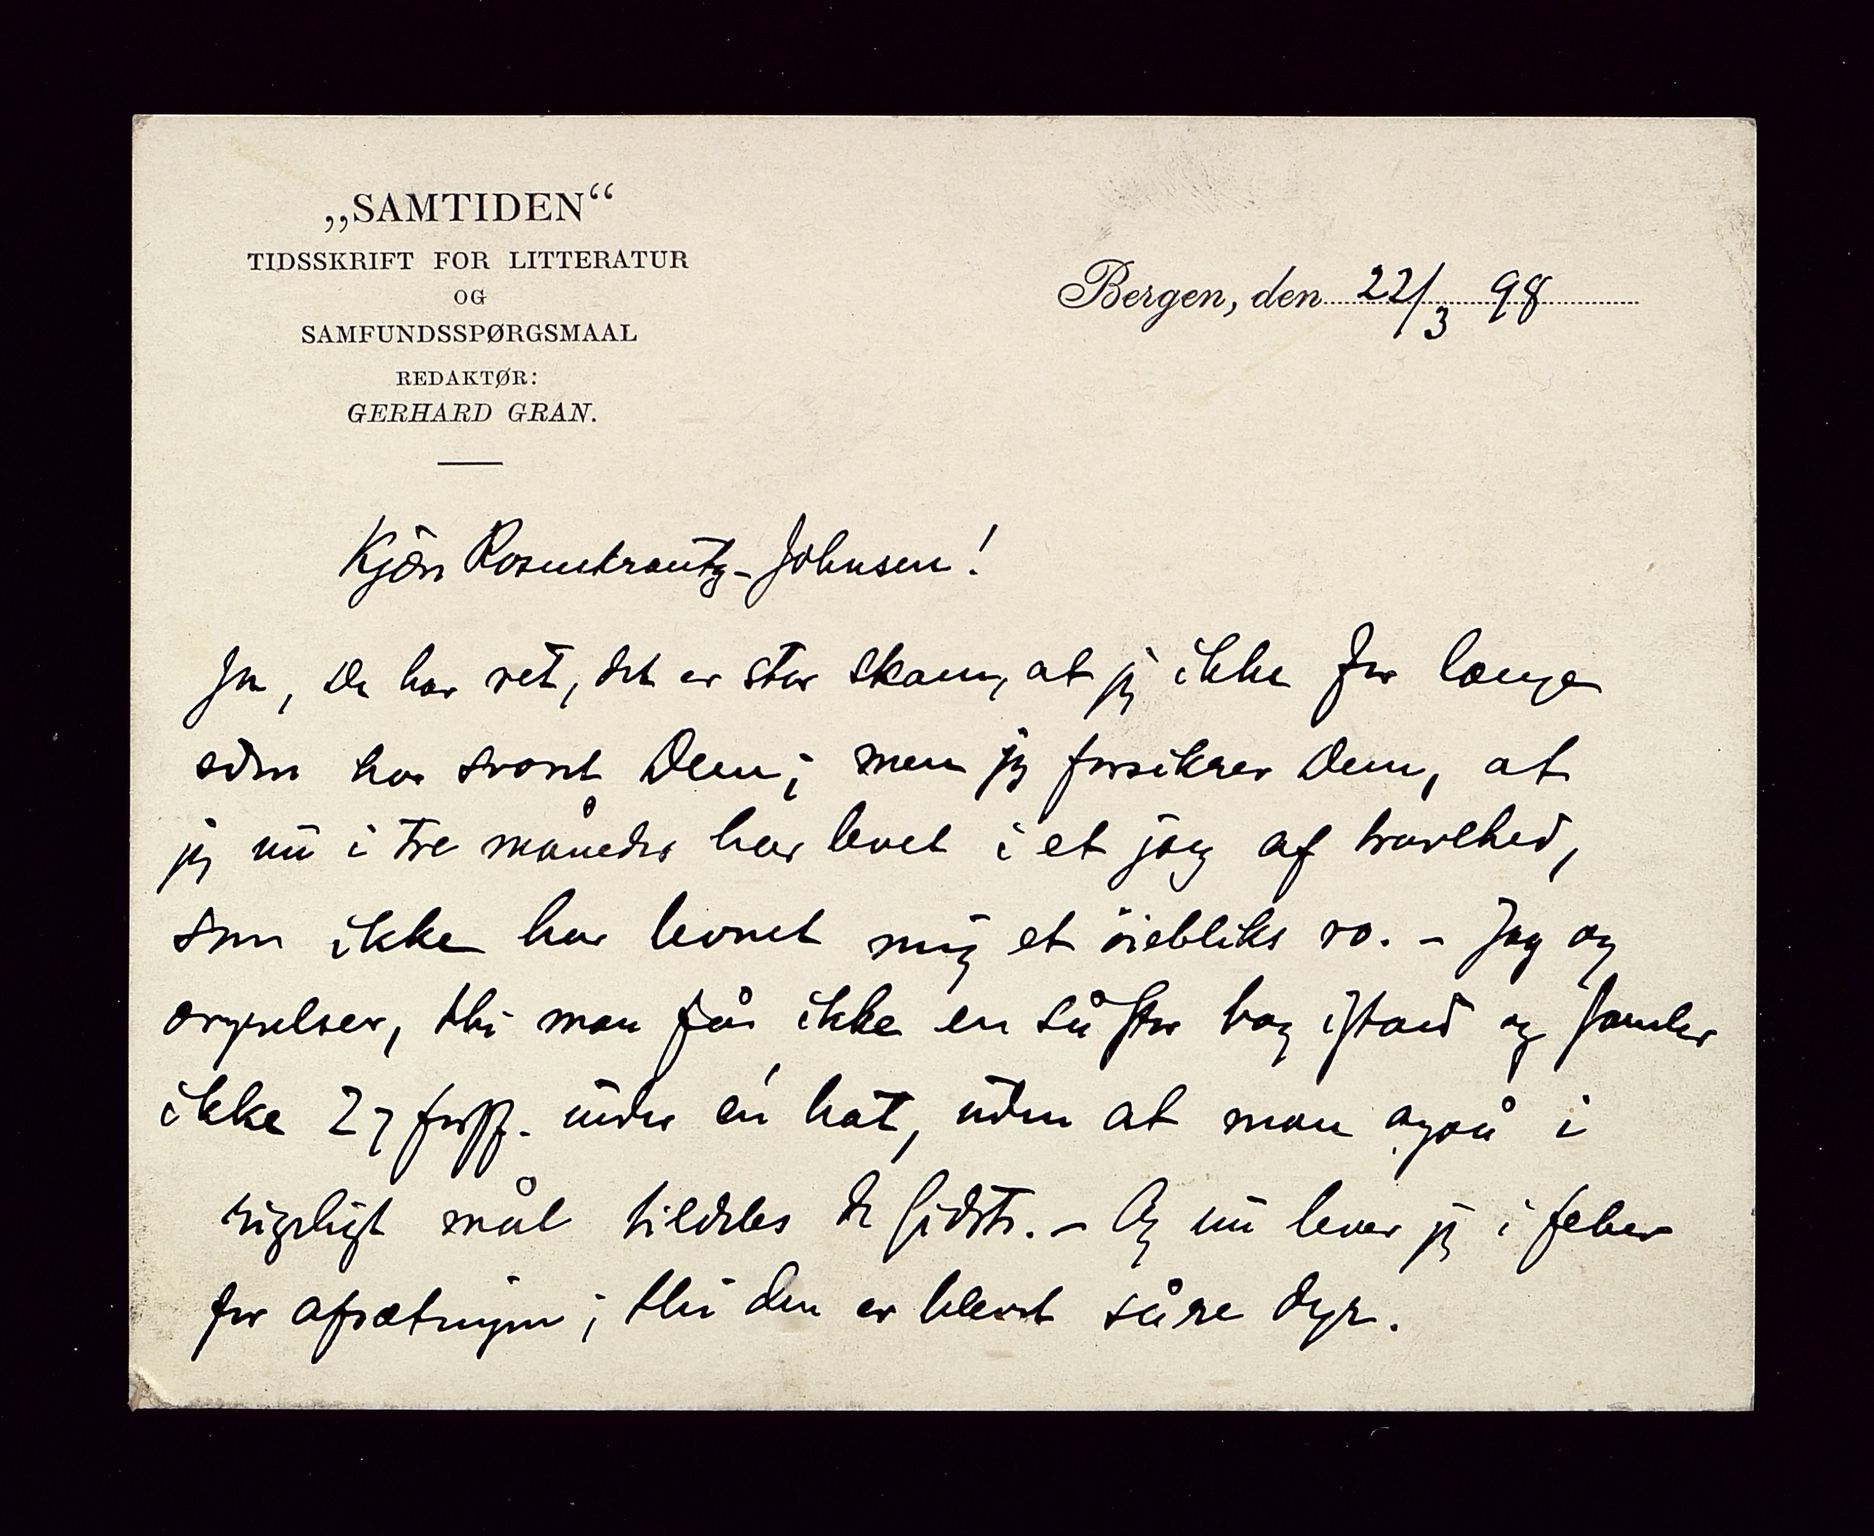 „SAMTIDEN“
TIDSSKRIFT FOR LITTERATUR
OG
SAMFUNDSSPØRGSMAAL
REDAKTØR:
GERHARD GRAN.
Bergen, den 22/3 98
Kjære Rosenkrantz-Johnsen!
Ja, De har ret, det er stor skam, at jeg ikke for længe
siden har svaret Dem; men jeg forsikrer Dem, at
jeg nu i tre måneder har levet i et jag af travlhed,
som ikke har levnet mig et øiebliks ro. – Jag og
ærgrelser, thi man får ikke en så stor bog istand og samler
ikke 27 forff. under én hat, uden at man også i
rigeligt mål tildeles de sidste. – Og nu lever jeg i feber
for afsætningen; thi den er blevet såre dyr.